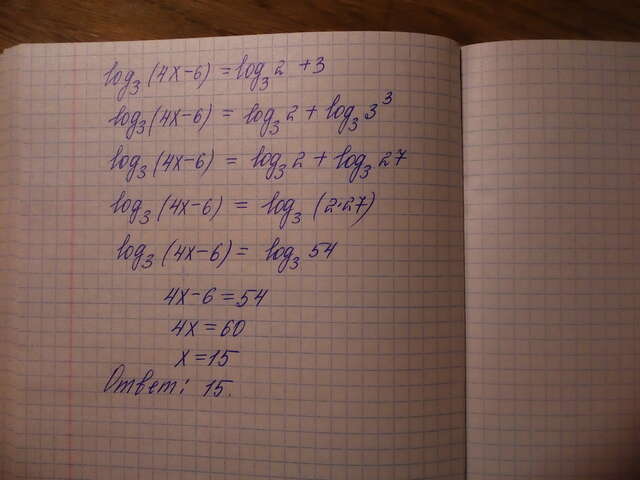 log₃(4x-6) = log₃2 +3
log₃(4x-6) = log₃2 + log₃3³
log₃(4x-6) = log₃2 + log₃27
log₃(4x-6) = log₃(2·27)
log₃(4x-6) = log₃54
4x-6 = 54
4x = 60
x = 15
Ответ: 15.